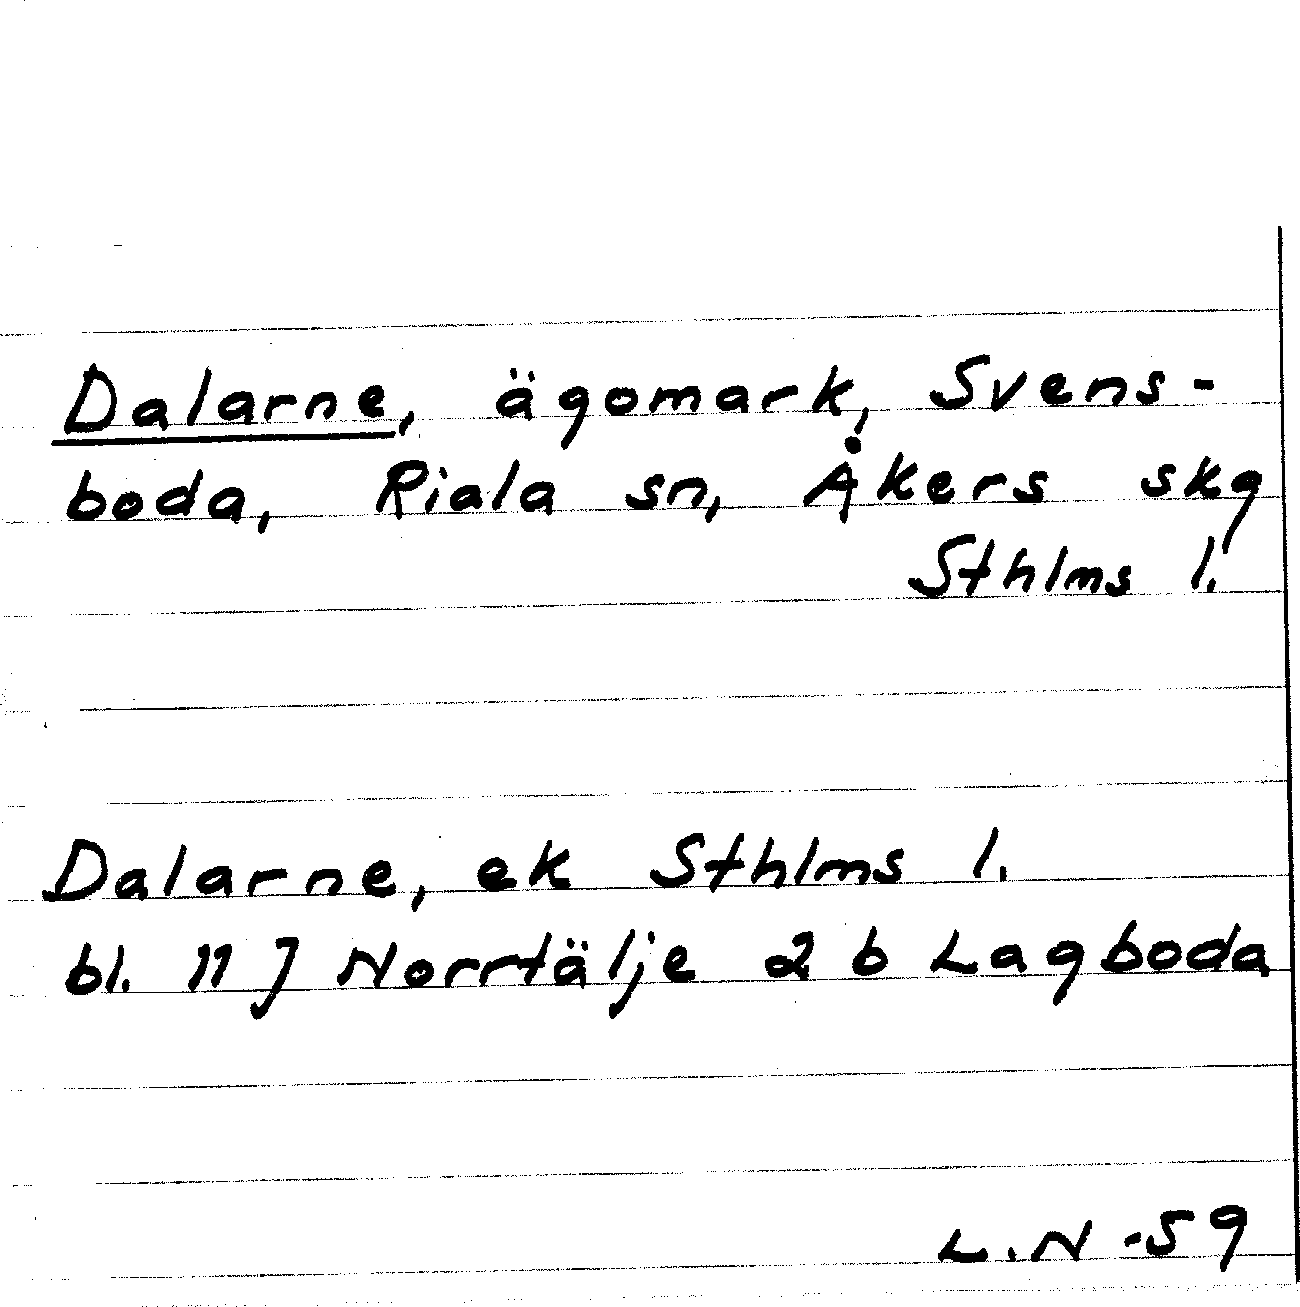 Dalarne, ägomark, Svens-
boda, Riala sn, Åkers skg
Sthlms l.
Dalarne, ek Sthlms l.
bl. 11 J Norrtälje 2 b Lagboda
L.N -59